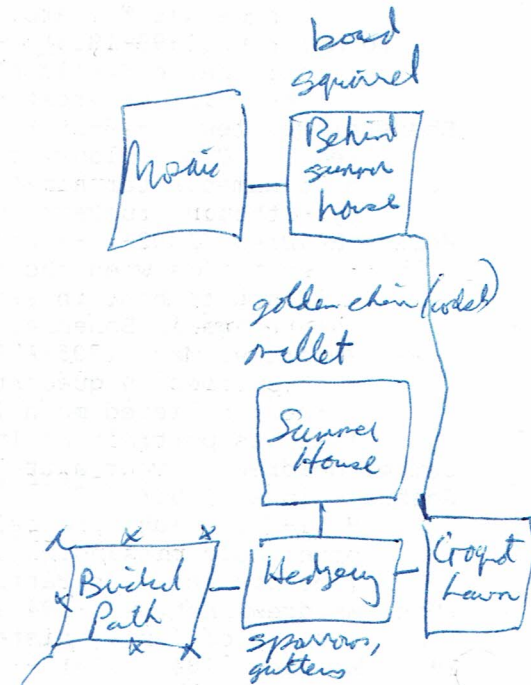 board
squirrel
Mosaic
Behind
summer
house
golden chain
mallet
Summer
House
Bricked
Path
Hedgery
Croquet
Lawn
sparrows,
gutters